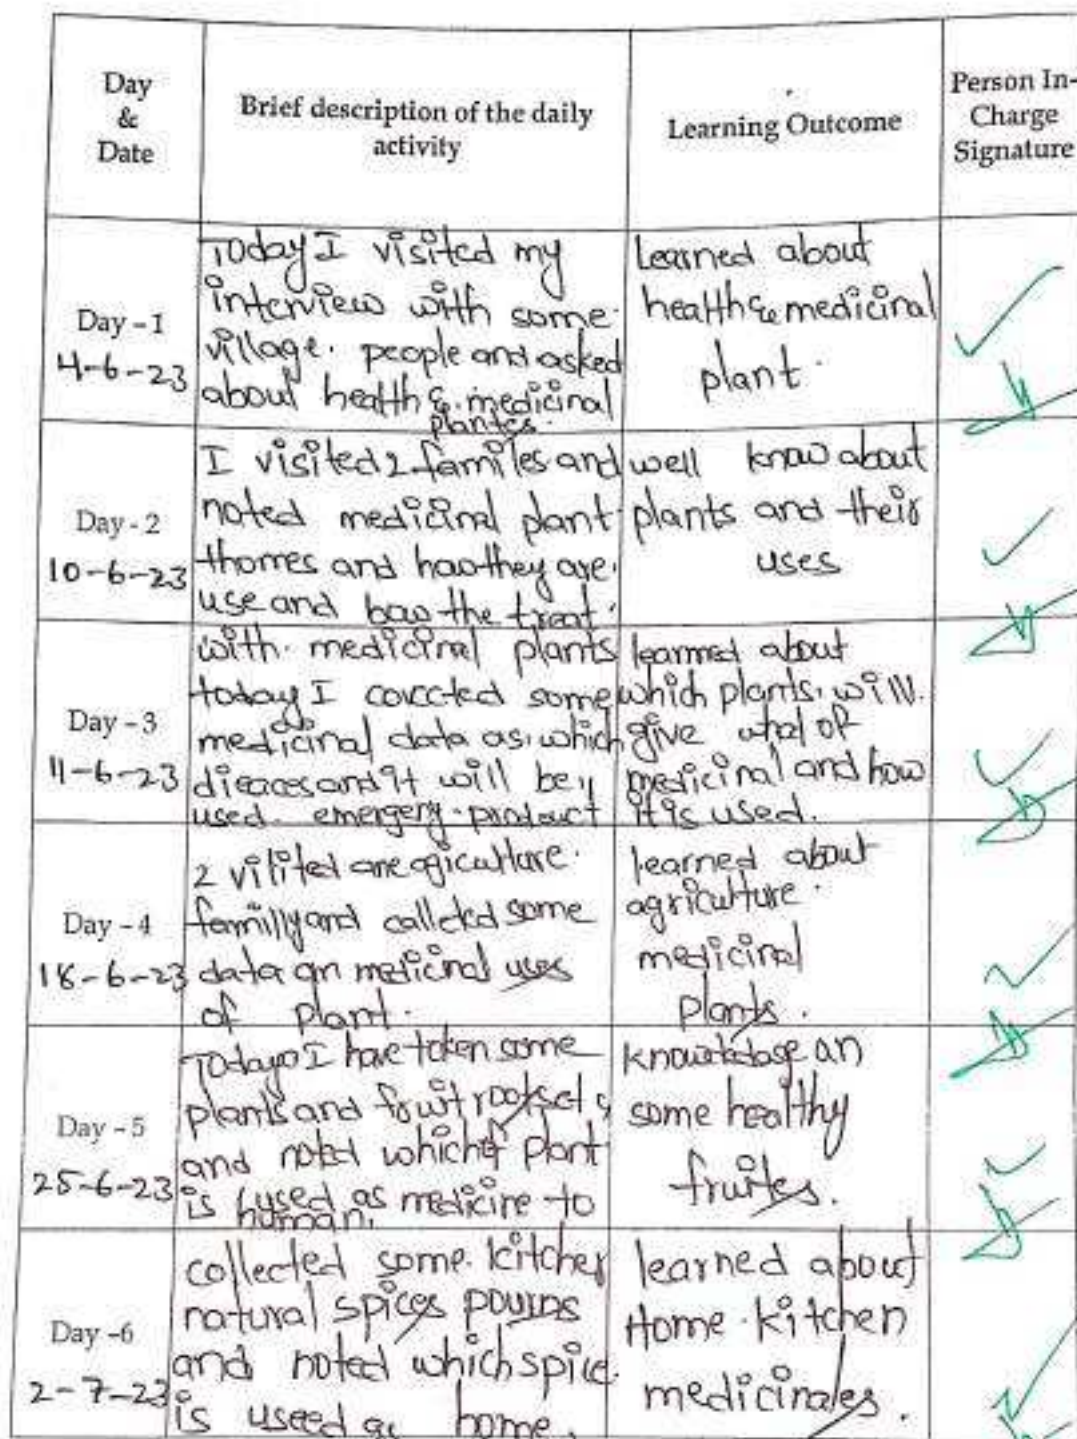 Day
&
Date
Brief description of the daily
activity
Learning Outcome
Person In-
Charge
Signature
Day - 1
4-6-23
Today I visited my
interview with some
village. people and asked
about health & medicinal
plantes.
Learned about
health & medicinal
plant.
Day - 2
10-6-23
I visited 2 familes and
noted medicinal plant
and how they are
use and the treat
with medicinal plants
well know about
plants and their
uses
Day - 3
11-6-23
today I some
medicinal data as which
and it will be
used. product
learned about
which plants will
give of
medicinal and how
it is used.
Day - 4
18-6-23
2
and some
data on uses
of plant.
learned about
agriculture.
medicinal
plants.
Day - 5
25-6-23
Today I have taken some
plants and fruit
and noted which plant
is used as medicine to
human.
an
some healthy
fruites.
Day -6
2-7-23
collected some kitchen
natural spices
and noted which spice
is useed home.
learned about
Home kitchen
medicinales.